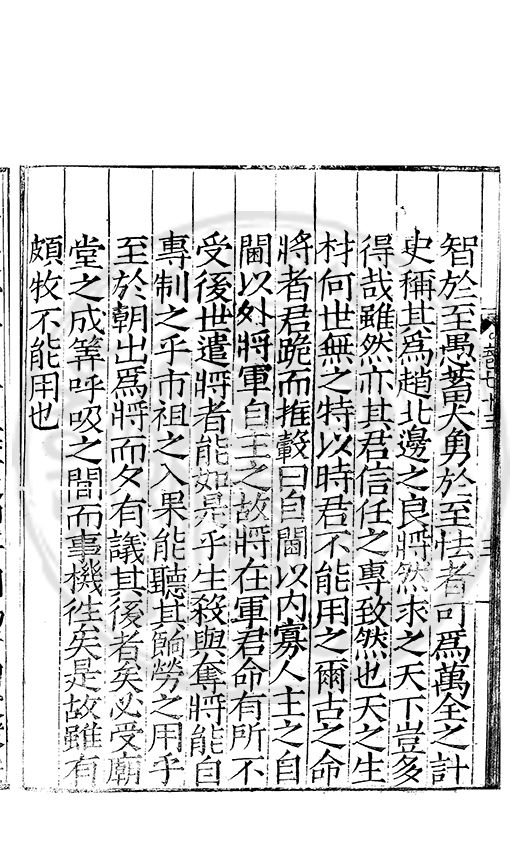 智於至愚蓄大勇於至怯者可爲萬全之計
史稱其爲趙北邊之良將然求之天下豈多
得哉雖然亦其君信任之專致然也天之生
材何世無之特以時君不能用之爾古之命
將者君跪而推轂曰自閫以内寡人主之自
閫以外將軍自主之故將在軍君命有所不
受後世遣將者能如是乎生殺與奪將能自
專制之乎市租之入果能聽其餉勞之用乎
至於朝出爲將而夕有議其後者矣必受廟
堂之成筭呼吸之間而事機徃矣是故雖有
頗牧不能用也